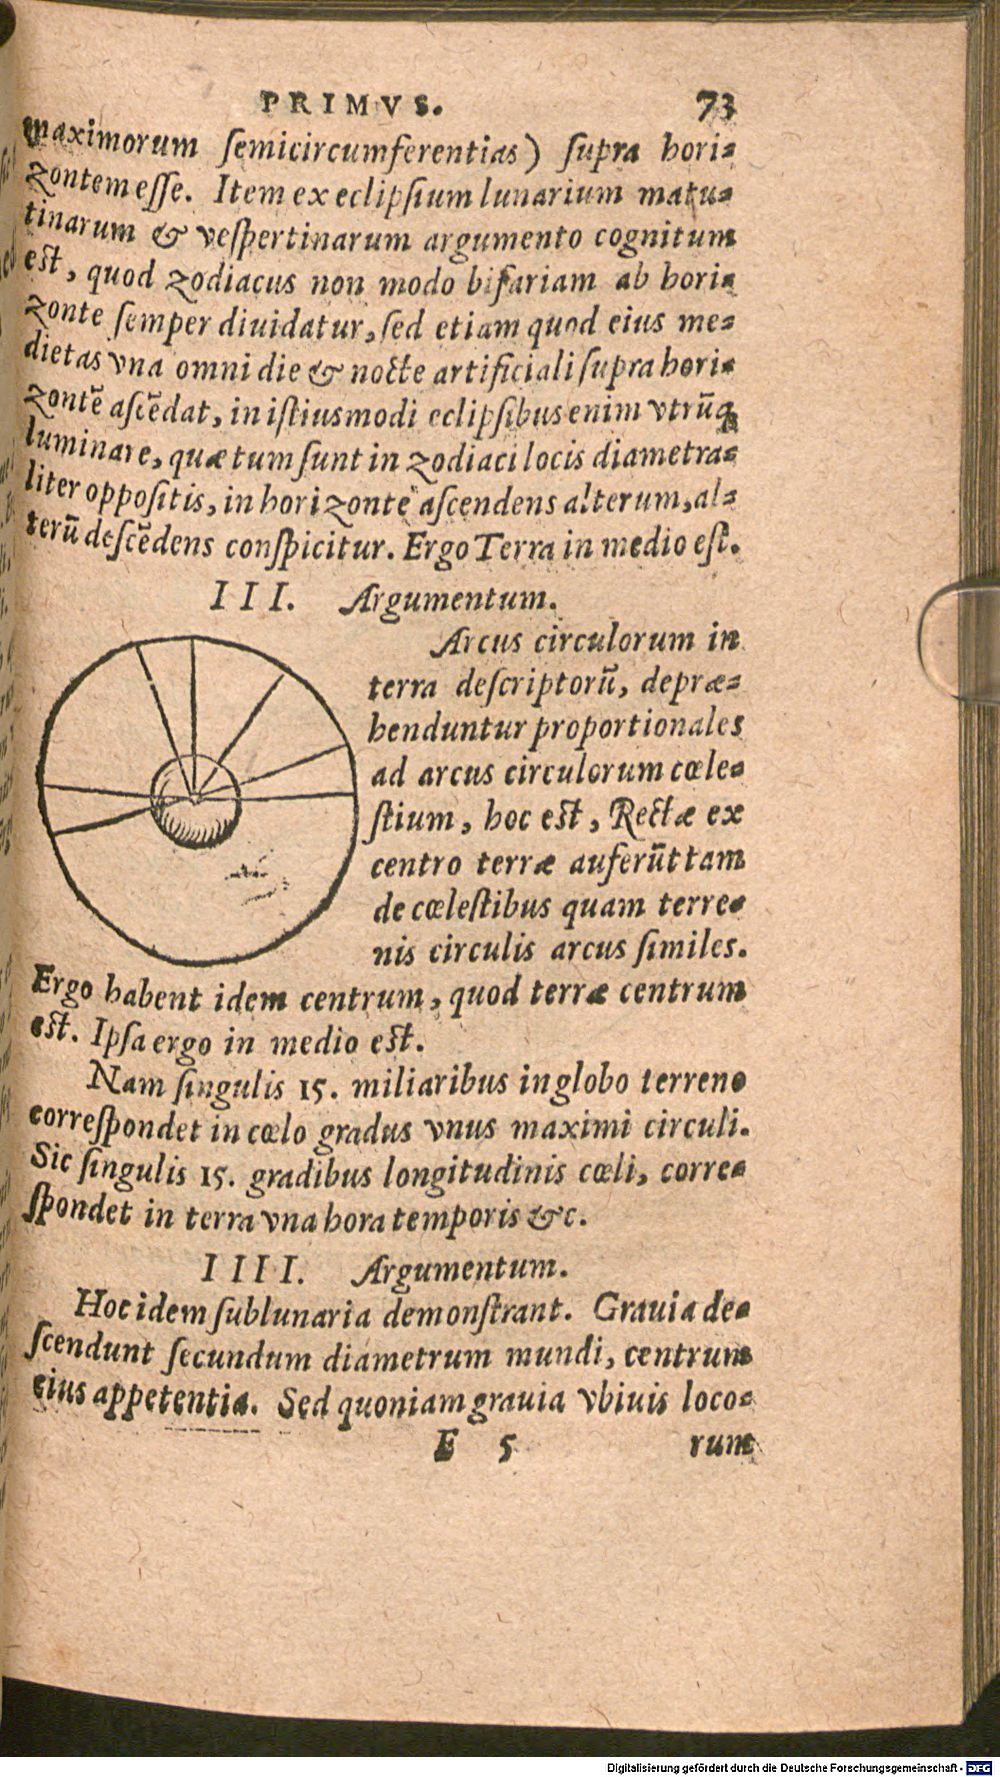 PRIMVS. 73
maximorum ſemicircumferentias) ſupra hori-
zontem eſſe. Item ex eclipſium lunarium matu-
tinarum & veſpertinarum argumento cognitum
eſt, quod zodiacus non modo bifariam ab hori-
zonte ſemper diuidatur, ſed etiam quod eius me-
dietas vna omni die & nocte artificiali ſupra hori-
zontẽ aſcẽdat, in iſtiusmodi eclipſibus enim vtrũq;
luminare, quæ tum ſunt in zodiaci locis diametra-
liter oppoſitis, in horizonte aſcendens alterum, al-
terũ deſcẽdens conſpicitur. Ergo Terra in medio eſt.
III. Argumentum.
Arcus circulorum in
terra deſcriptorũ, depræ-
henduntur proportionales
ad arcus circulorum cœle-
ſtium, hoc eſt, Rectæ ex
centro terræ auferũt tam
de cœleſtibus quam terre-
nis circulis arcus ſimiles.
Ergo habent idem centrum, quod terræ centrum
eſt. Ipſa ergo in medio eſt.
Nam ſingulis 15. miliaribus in globo terreno
correſpondet in cœlo gradus vnus maximi circuli.
Sic ſingulis 15. gradibus longitudinis cœli, corre-
ſpondet in terra vna hora temporis &c.
IIII. Argumentum.
Hoc idem ſublunaria demonſtrant. Grauia de-
ſcendunt ſecundum diametrum mundi, centrum
eius appetentia. Sed quoniam grauia vbiuis loco-
E 5 rum
Digitalisierung gefördert durch die Deutsche Forschungsgemeinschaft - DFG